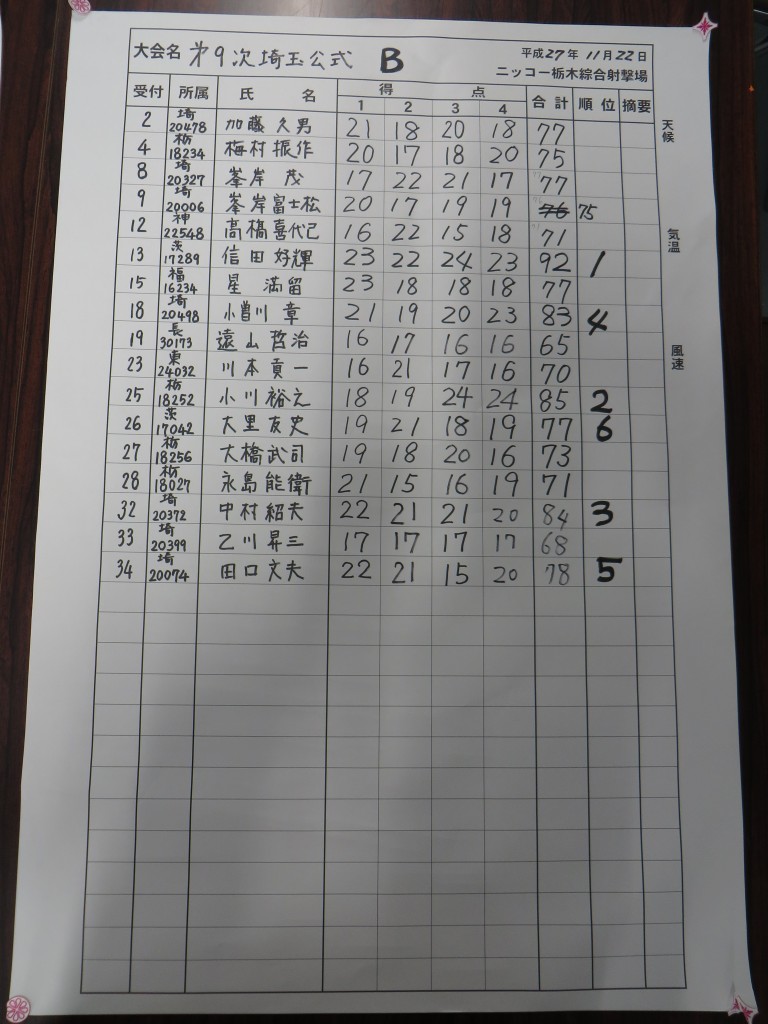 大会名 第9次埼玉公式 B 平成27年 11月22日
ニッコー栃木綜合射撃場
受付 所属 氏 名 得 点 合計 順位 摘要
1 2 3 4
2 埼 20478 加藤久男 21 18 20 18 77
4 栃 18234 梅村振作 20 17 18 20 75
8 埼 20327 峯岸 茂 17 22 21 17 77
9 埼 20006 峯岸富士松 20 17 19 19 76 75
12 神 22548 髙橋喜代己 16 22 15 18 71
13 茨 17289 信田好輝 23 22 24 23 92 1
15 福 16234 星 満留 23 18 18 18 77
18 埼 20498 小曽川 章 21 19 20 23 83 4
19 長 30173 遠山哲治 16 17 16 16 65
23 東 24032 川本貢一 16 21 17 16 70
25 栃 18252 小川裕之 18 19 24 24 85 2
26 茨 17042 大里友史 19 21 18 19 77 6
27 栃 18256 大橋武司 19 18 20 16 73
28 栃 18027 永島能衛 21 15 16 19 71
32 埼 20372 中村紹夫 22 21 21 20 84 3
33 埼 20399 乙川昇三 17 17 17 17 68
34 埼 20074 田口文夫 22 21 15 20 78 5
天候
気温
風速